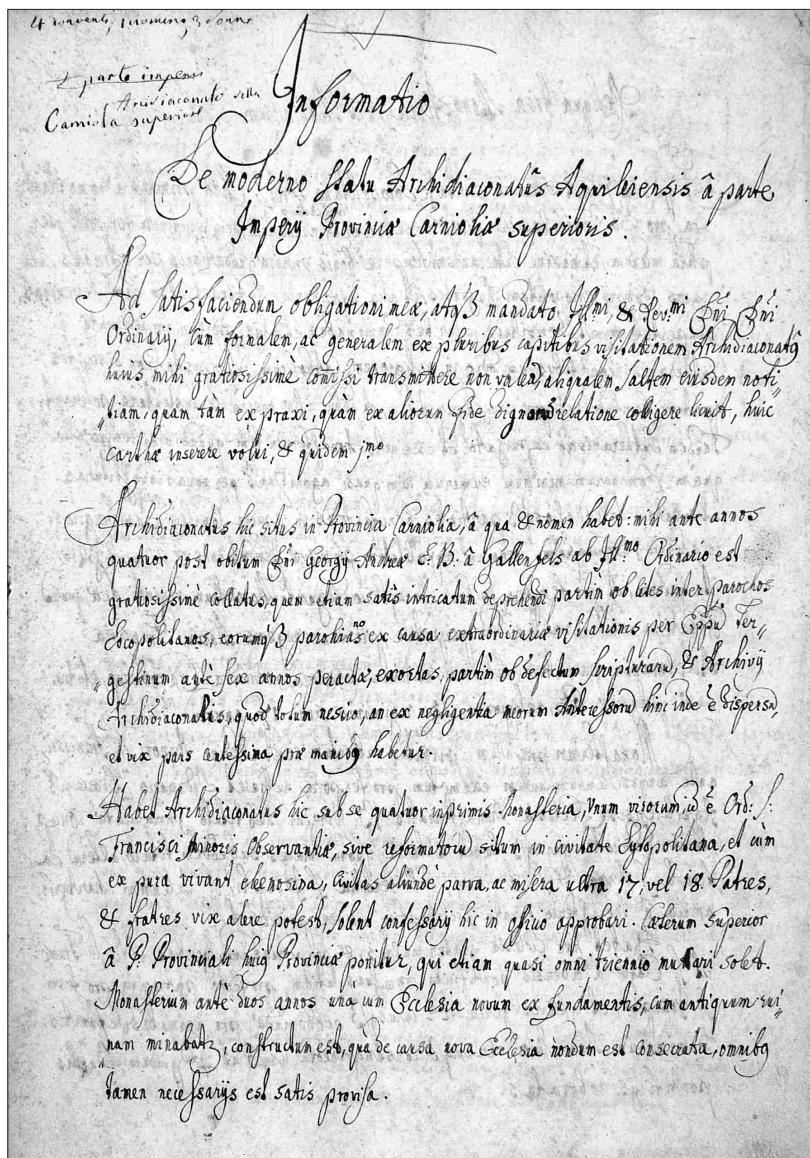 4 conventi, 1 uomini, 3 donne
a parte imperii
Arcidiaconato della
Carniola superiore
Informatio
De moderno statu Archidiaconatûs Aquileiensis â parte
Imperij Provinciæ Carnioliæ superioris.
Ad satisfaciendum obligationi meæ, atq3 mandato Ill.mi, & Rev.mi Dñi Dñi
Ordinarij, cum formalem, ac generalem ex pluribus capitibus visitationem Archidiaconatus
huius mihi gratiosissimè com̃issi transmittere non valeã, aliqualem saltem eiusdem noti¨
¨tiam, quam tàm ex praxi, quàm ex aliorum fide dignorũ relatione colligere licuit, huic
carthæ inserere volui, & quidem j.mo
Archidiaconatus hic situs in Provincia Carniolia, â qua & nomen habet: mihi ante annos
quatuor post obitum Dñi Georgij Andreæ L: B: â Gallenfels ab Ill.mo Ordinario est
gratiosissimè collatus, quem etiam satis intricatum deprehendi partìm ob lites inter parochos
Locopolitanos, eorumq3 parohianos ex causa extraordinariæ visitationis per Eppũ Ter¨
¨gestinum antè sex annos peractæ, exortas, partìm ob defectum scripturarũ, & Archivij
Archidiaconalis, quod totum nescio, an ex negligentia meorum Antecessorũ hinc inde ẽ dispersũ,
et vix pars centessima præ manibus habetur.
Habet Archidiaconatus hic sub se quatuor inprimis Monasteria, Vnum virorum, id ẽ Ord: S:
Francisci Minoris Observantiæ, sive reformatorũ situm in civitate Lythopolitana, et cùm
ex pura vivant elemosina, Civitas aliundè parva, ac misera ultra 17, vel 18. Patres,
& fratres vix alere potest, solent confessarij hic in officio approbari. Cæterum Superior
â P. Provinciali huius Provinciæ ponitur, qui etiam quasi omni triennio mutari solet.
Monasterium antè duos annos unà cum Ecclesia novum ex fundamentis, cum antiquum rui¨
nam minabatr, constructum est, qua de causa nova Ecclesia nondum est consecrata, omnibus
tamen necessarijs est satis provisa.